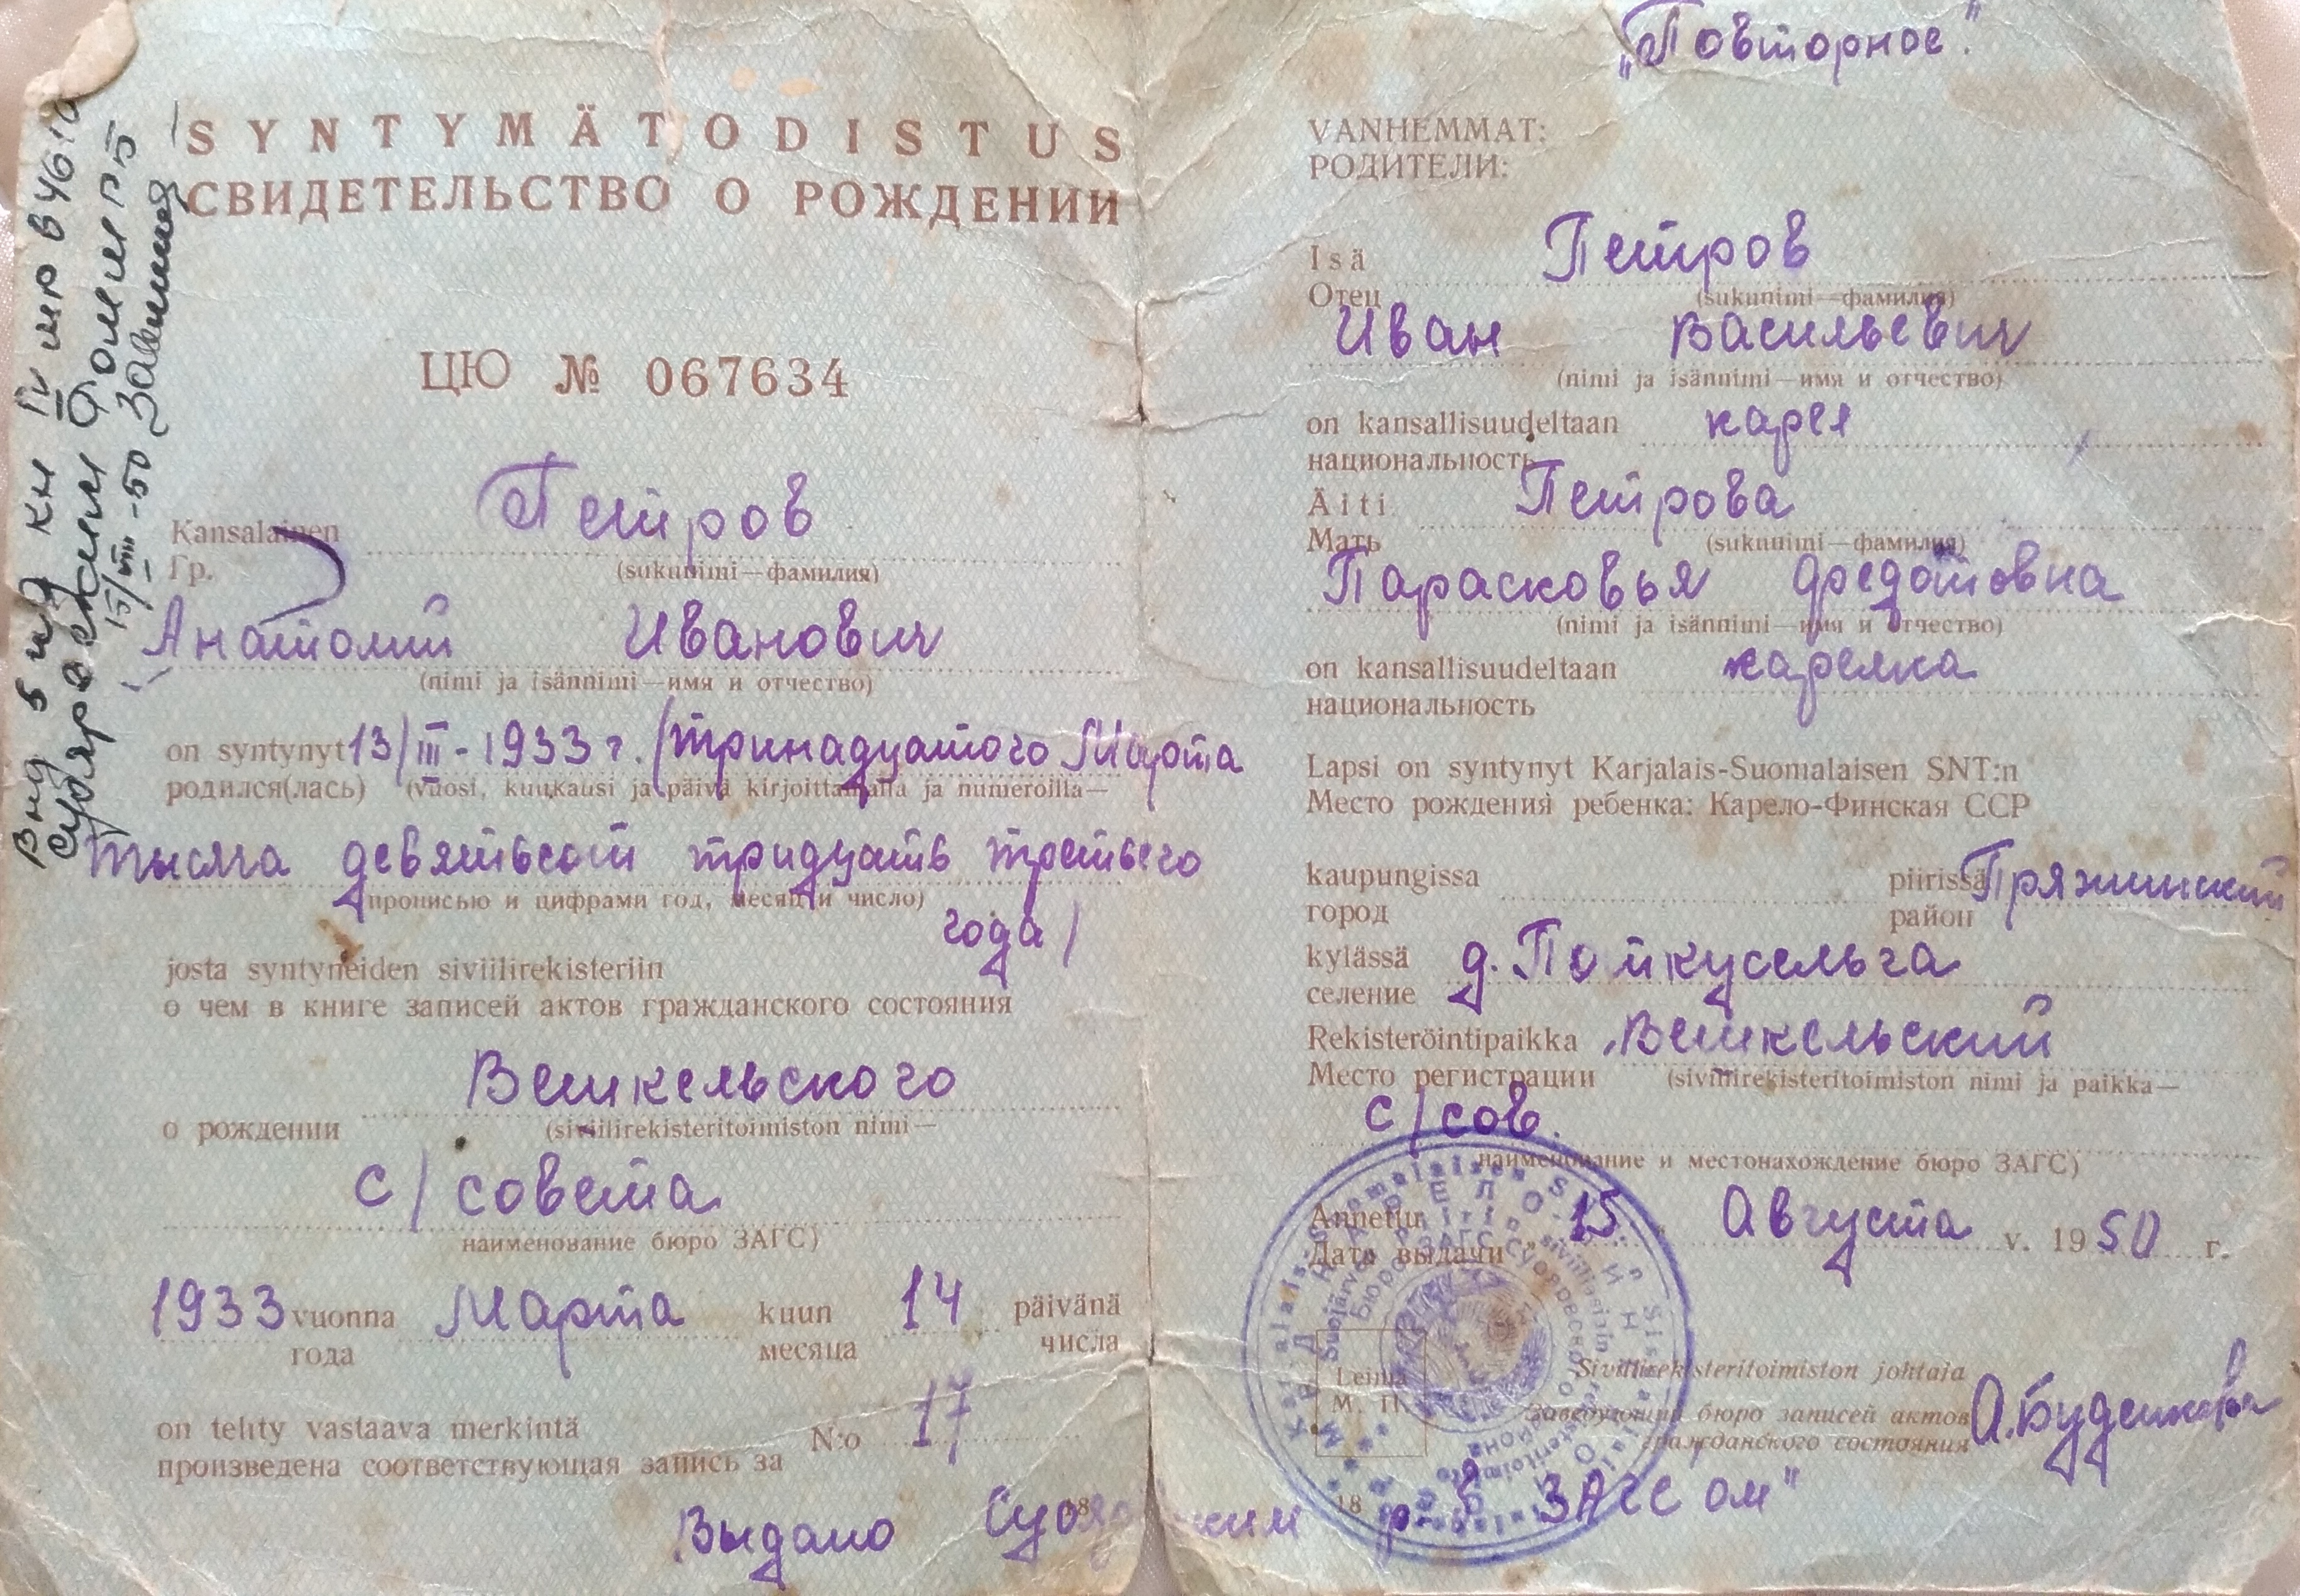 SYNTYMÄTODISTUS
СВИДЕТЕЛЬСТВО О РОЖДЕНИИ
ЦЮ № 067634
Kansalainen Петров
Гр. (sukunimi—фамилия)
Анатолий Иванович
(nimi ja isännimi—имя и отчество)
on syntynyt 13/III-1933 г. (тринадцатого Марта
родился(лась) (vuosi, kuukausi ja päivä kirjoittamalla ja numeroilla—
тысяча девятьсот тридцать третьего
прописью и цифрами год, месяц и число)
года)
josta syntyneiden siviilirekisteriin
о чем в книге записей актов гражданского состояния
Вешкельского
о рождении (siviilirekisteritoimiston nimi—
с/совета
наименование бюро ЗАГС)
1933 vuonna Марта kuun 14 päivänä
года месяца числа
on tehty vastaava merkintä
произведена соответствующая запись за N:o 17
Выдано
"Повторное"
VANHEMMAT:
РОДИТЕЛИ:
Isä Петров
Отец (sukunimi—фамилия)
Иван Васильевич
(nimi ja isännimi—имя и отчество)
on kansallisuudeltaan карел
национальность
Äiti Петрова
Мать (sukunimi—фамилия)
Парасковья Федотовна
(nimi ja isännimi—имя и отчество)
on kansallisuudeltaan карелка
национальность
Lapsi on syntynyt Karjalais-Suomalaisen SNT:n
Место рождения ребенка: Карело-Финская ССР
kaupungissa piirissä Пряжинский
город район
kylässä д. Пойкусельга
селение
Rekisteröintipaikka Вешкельский
Место регистрации (siviilirekisteritoimiston nimi ja paikka—
с/сов.
наименование и местонахождение бюро ЗАГС)
Annettu 15 Августа v. 1950 г.
Дата выдачи
Leima
М. П.
Siviilirekisteritoimiston johtaja
Заведующий бюро записей актов
гражданского состояния
18 ЗАГСом"